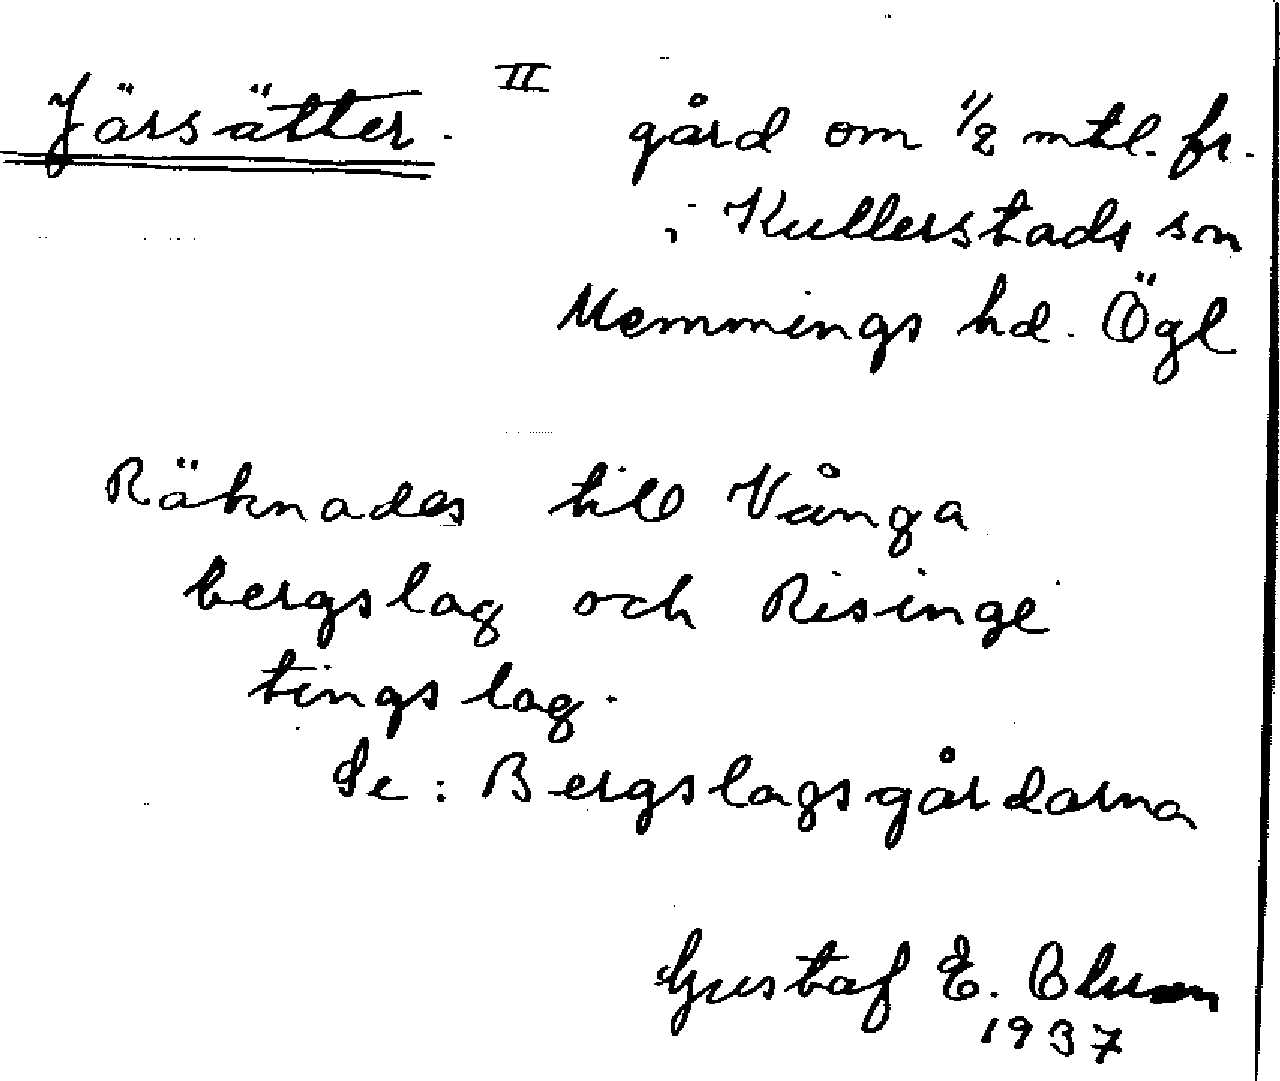 Järsätter. II gård om 1/2 mtl. fr.
i Kullerstads sn
Memmings hd. Ögl
Räknades till Vånga
bergslag och Risinge
tingslag.
Se: Bergslagsgårdarna
Gustaf E. Blum
1937